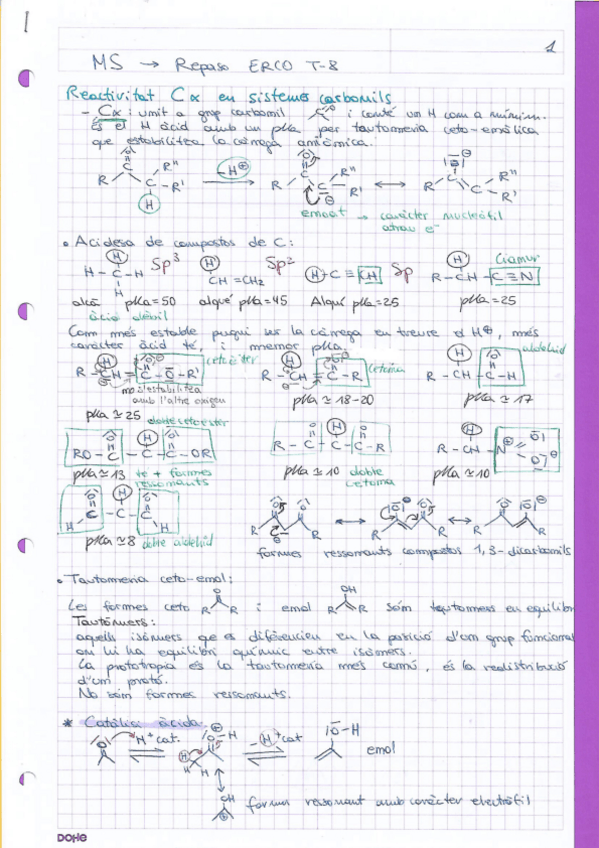 1
MS → Repaso ERCO T-8
Reactivitat Cα en sistemes carbonils
- Cα : unit a grup carbonil i conté un H com a mínim.
és el H àcid amb un pKa per tautomeria ceto-enòlica
que estabilitza la càrrega aniònica.
R R' R'' H -H⊕ R R' R'' ↔ R R' R''
enolat → caràcter nucleòfil
atrau e⁻
• Acidesa de compostos de C:
H-C-H Sp³ CH=CH₂ Sp² H-C≡CH Sp R-CH-C≡N Cianur
alcà pKa=50 alquè pKa=45 Alquí pKa=25 pKa=25
àcid dèbil
Com més estable pugui ser la càrrega en treure el H⊕, més
caràcter àcid té, i menor pKa.
cetoèster cetona aldehid
R-CH-C-O-R' R-CH-C-R R-CH-C-H
no s'estabilitza
amb l'altre oxigen
pKa ≃ 25 pKa ≃ 18-20 pKa ≃ 17
doble cetoester
RO-C-C-C-OR R-C-C-C-R R-CH-N
pKa ≃ 13 té + formes
ressonants
pKa ≃ 10 doble
cetona
pKa ≃ 10
H C-C-C H
pKa ≃ 8 doble aldehid
formes ressonants compostos 1,3-dicarbonils
• Tautomeria ceto-enol:
Les formes ceto R R i enol R R són tautòmers en equilibri
Tautòmers:
aquells isòmers que es diferencien en la posició d'un grup funcional
on hi ha equilibri químic entre isòmers.
La prototropia és la tautomeria més comú, és la redistribució
d'un protó.
No són formes ressonants.
* Catàlisi àcida:
H⁺cat. -H⁺cat enol
forma ressonant amb caràcter electròfil
DOHE